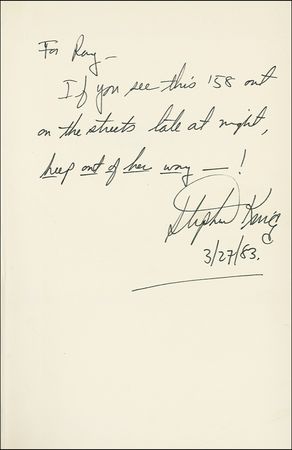 For Ray—
If you see this '58 out
on the streets late at night,
keep out of her way —!
Stephen King
3/27/83.